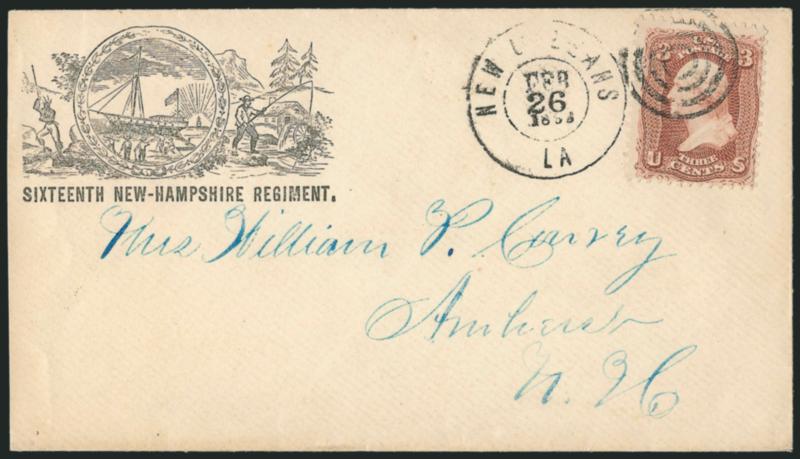 SIXTEENTH NEW-HAMPSHIRE REGIMENT.
NEW ORLEANS
FEB
26
LA
3 U.S. POSTAGE 3
U THREE CENTS S
Mrs William P.
Amherst
N. H